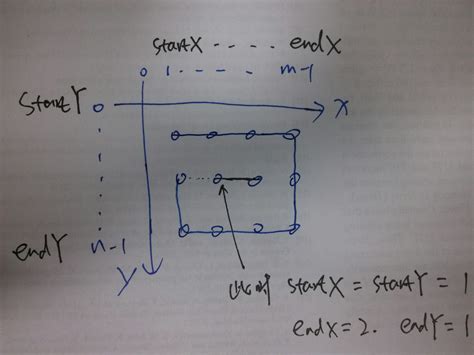 startX - - - - endX
0 1 - - - - - m-1
startY 0
X
endY n-1
Y
此时 startX = startY = 1
endX=2. endY=1